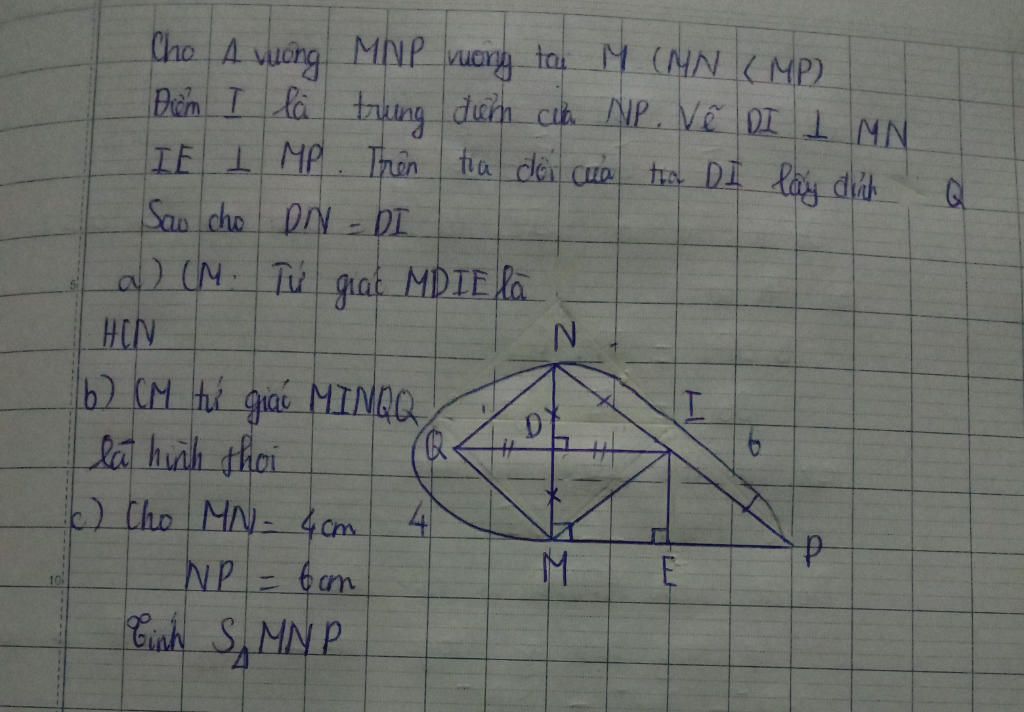 Cho Δ vuông MNP vuông tại M (MN < MP)
Điểm I là trung điểm của NP. Vẽ DI ⊥ MN
IE ⊥ MP. Trên tia đối của tia DI lấy đỉnh Q
Sao cho DN = DI
a) CM. Tứ giác MDIE là
HCN
b) CM tứ giác MINQQ
là hình thoi
c) Cho MN = 4cm
NP = 6cm
Tính SΔ MNP
N
I
D
Q
6
4
M
E
P
5
10